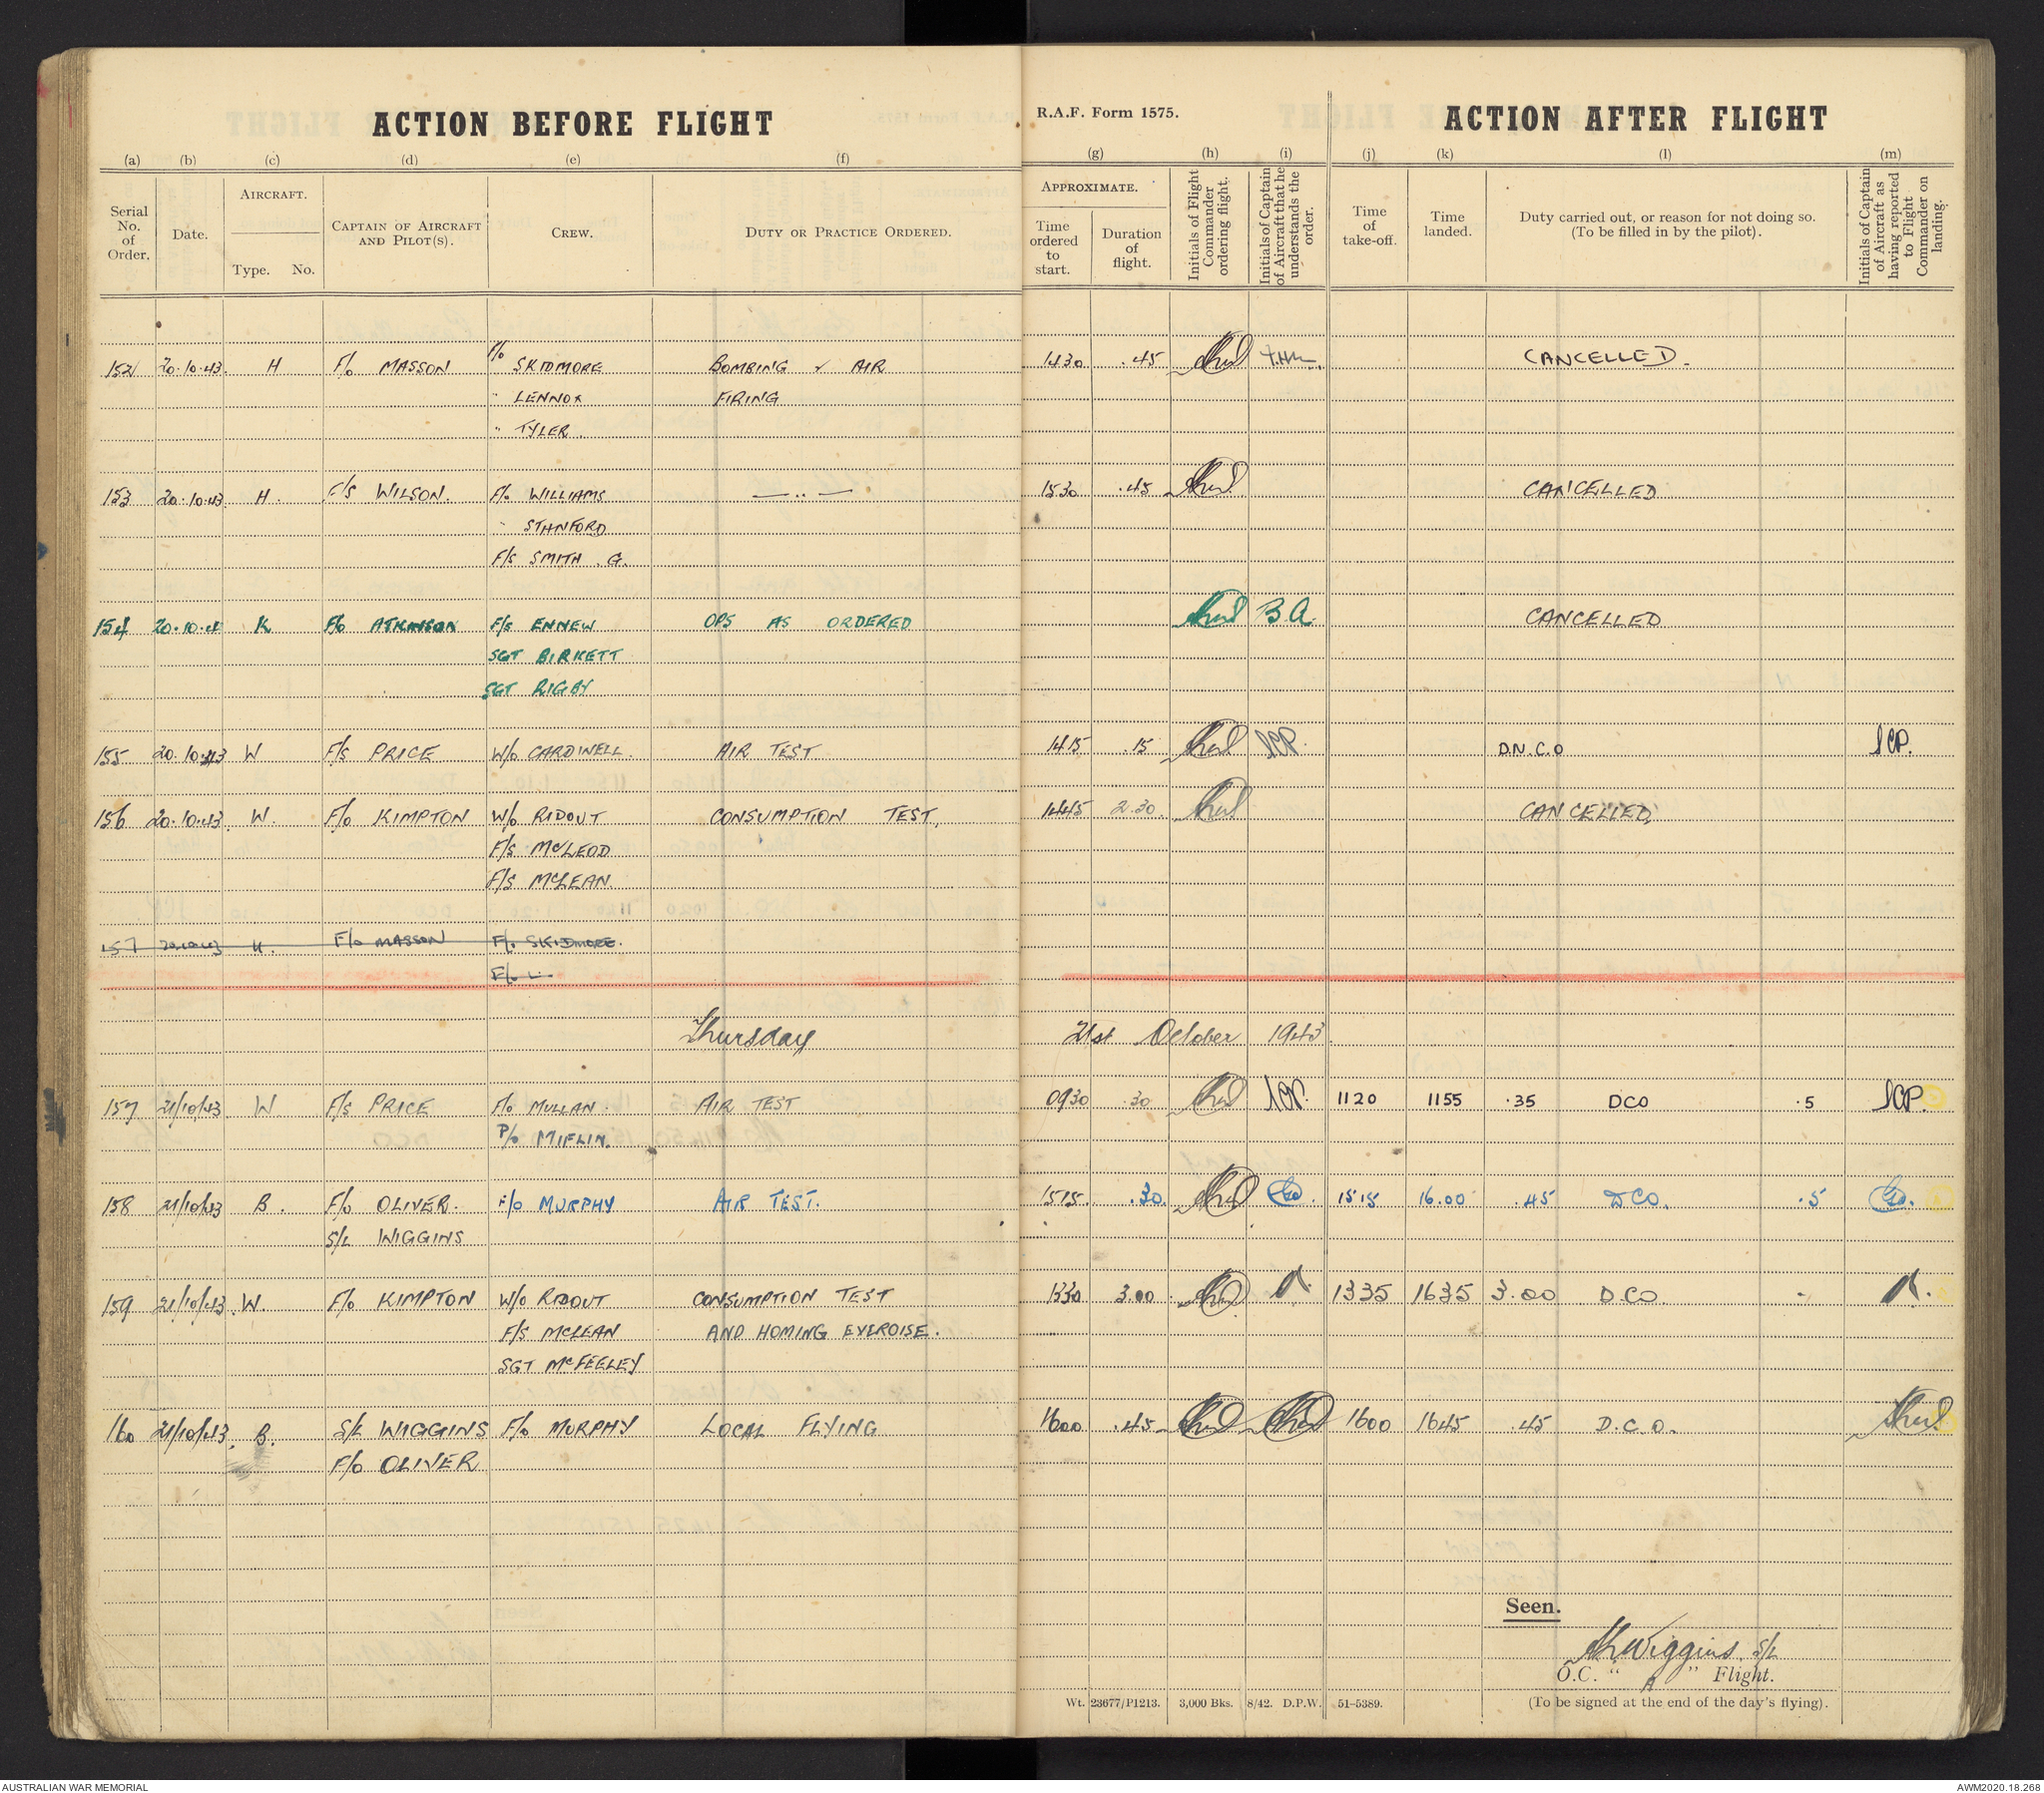 ACTION BEFORE FLIGHT
R.A.F. Form 1575.
ACTION AFTER FLIGHT
(a) (b) (c) (d) (e) (f) (g) (h) (i) (j) (k) (l) (m)
Serial No. of Order.
Date.
AIRCRAFT.
Type. No.
CAPTAIN OF AIRCRAFT AND PILOT(S).
CREW.
DUTY OR PRACTICE ORDERED.
APPROXIMATE.
Time ordered to start.
Duration of flight.
Initials of Flight Commander ordering flight.
Initials of Captain of Aircraft that he understands the order.
Time of take-off.
Time landed.
Duty carried out, or reason for not doing so.
(To be filled in by the pilot).
Initials of Captain of Aircraft as having reported to Flight Commander on landing.
152 20.10.43. H F/o MASSON F/o SKIDMORE BOMBING & AIR 1430 .45 CANCELLED.
" LENNOX FIRING
" TYLER.
153 20.10.43 H. F/S WILSON. F/o WILLIAMS — " — 1530 .45 CANCELLED
" STANFORD
F/S SMITH . G.
154 20.10.4 K F/o ATKINSON F/S ENNEW OPS AS ORDERED B.A. CANCELLED
SGT BIRKETT
SGT RIGBY
155 20.10.43 W F/S PRICE W/o CARDWELL. AIR TEST 1415 .15 D.N.C.O
156 20.10.43. W. F/o KIMPTON W/o RIDOUT CONSUMPTION TEST, 1445 2.30. CANCELLED,
F/S McLEOD
F/S McLEAN.
157 20.10.43 H. F/o MASSON F/o SKIDMORE.
F/o L
Thursday 21st October 1943.
157 21/10/43 W F/S PRICE F/o MULLAN. AIR TEST 0930 .30 1120 1155 .35 DCO .5
P/o MIFLIN.
158 21/10/43 B. F/o OLIVER. F/o MURPHY AIR TEST. 1515. .30. 1515 16.00 .45 DCO. .5
S/L WIGGINS
159 21/10/43. W F/o KIMPTON W/o RIDOUT CONSUMPTION TEST 1330 3.00. 1335 1635 3.00 D.CO. -
F/S McLEAN AND HOMING EXERCISE.
SGT McFEELEY
160 21/10/43. B. S/L WIGGINS F/o MURPHY LOCAL FLYING 1600 .45 1600 1645 .45 D.C.O.
F/o OLIVER
Seen.
Wiggins S/L
O.C. " A " Flight.
Wt. 23677/P1213. 3,000 Bks. 8/42. D.P.W. 51-5389.
(To be signed at the end of the day's flying).
AUSTRALIAN WAR MEMORIAL
AWM2020.18.268